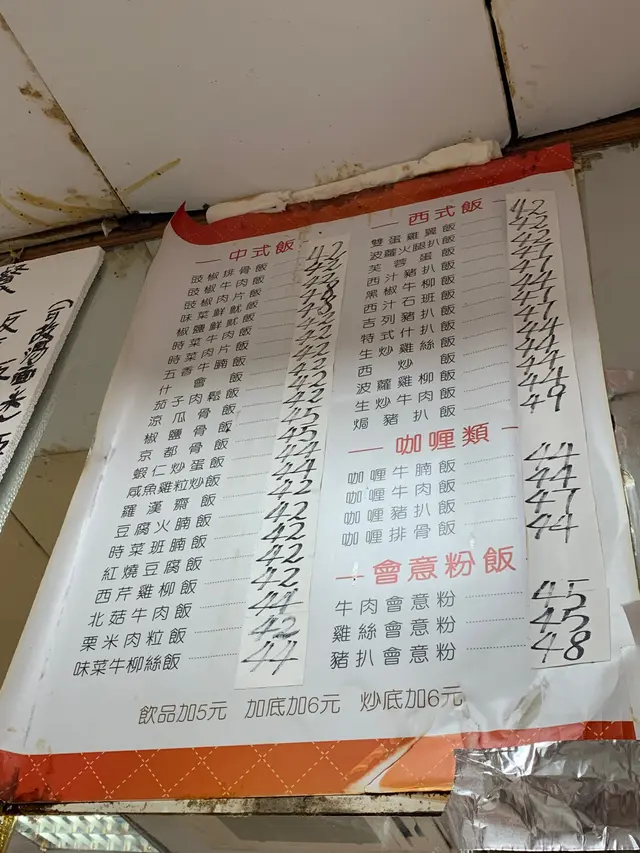 中式飯
豉椒排骨飯 42
豉椒牛肉飯 42
豉椒肉片飯 42
味菜鮮魷飯 48
椒鹽鮮魷飯 48
時菜牛肉飯 42
時菜肉片飯 42
五香牛腩飯 42
什會飯 42
茄子肉鬆飯 42
涼瓜骨飯 42
椒鹽骨飯 45
京都骨飯 45
蝦仁炒蛋飯 44
咸魚雞粒炒飯 44
羅漢齋飯 42
豆腐火腩飯 42
時菜班腩飯 42
紅燒豆腐飯 42
西芹雞柳飯 42
北菇牛肉飯 44
栗米肉粒飯 42
味菜牛柳絲飯 44
西式飯
雙蛋雞翼飯 42
波蘿火腿扒飯 42
芙蓉蛋飯 42
西汁豬扒飯 47
黑椒牛柳飯 44
西汁石班飯 47
吉列豬扒飯 47
特式什扒飯
生炒雞絲飯 44
西炒飯 44
波蘿雞柳飯 44
生炒牛肉飯 44
焗豬扒飯 49
咖喱類
咖喱牛腩飯 44
咖喱牛肉飯 44
咖喱豬扒飯 47
咖喱排骨飯 44
會意粉飯
牛肉會意粉 45
雞絲會意粉 45
豬扒會意粉 48
飲品加5元 加底加6元 炒底加6元